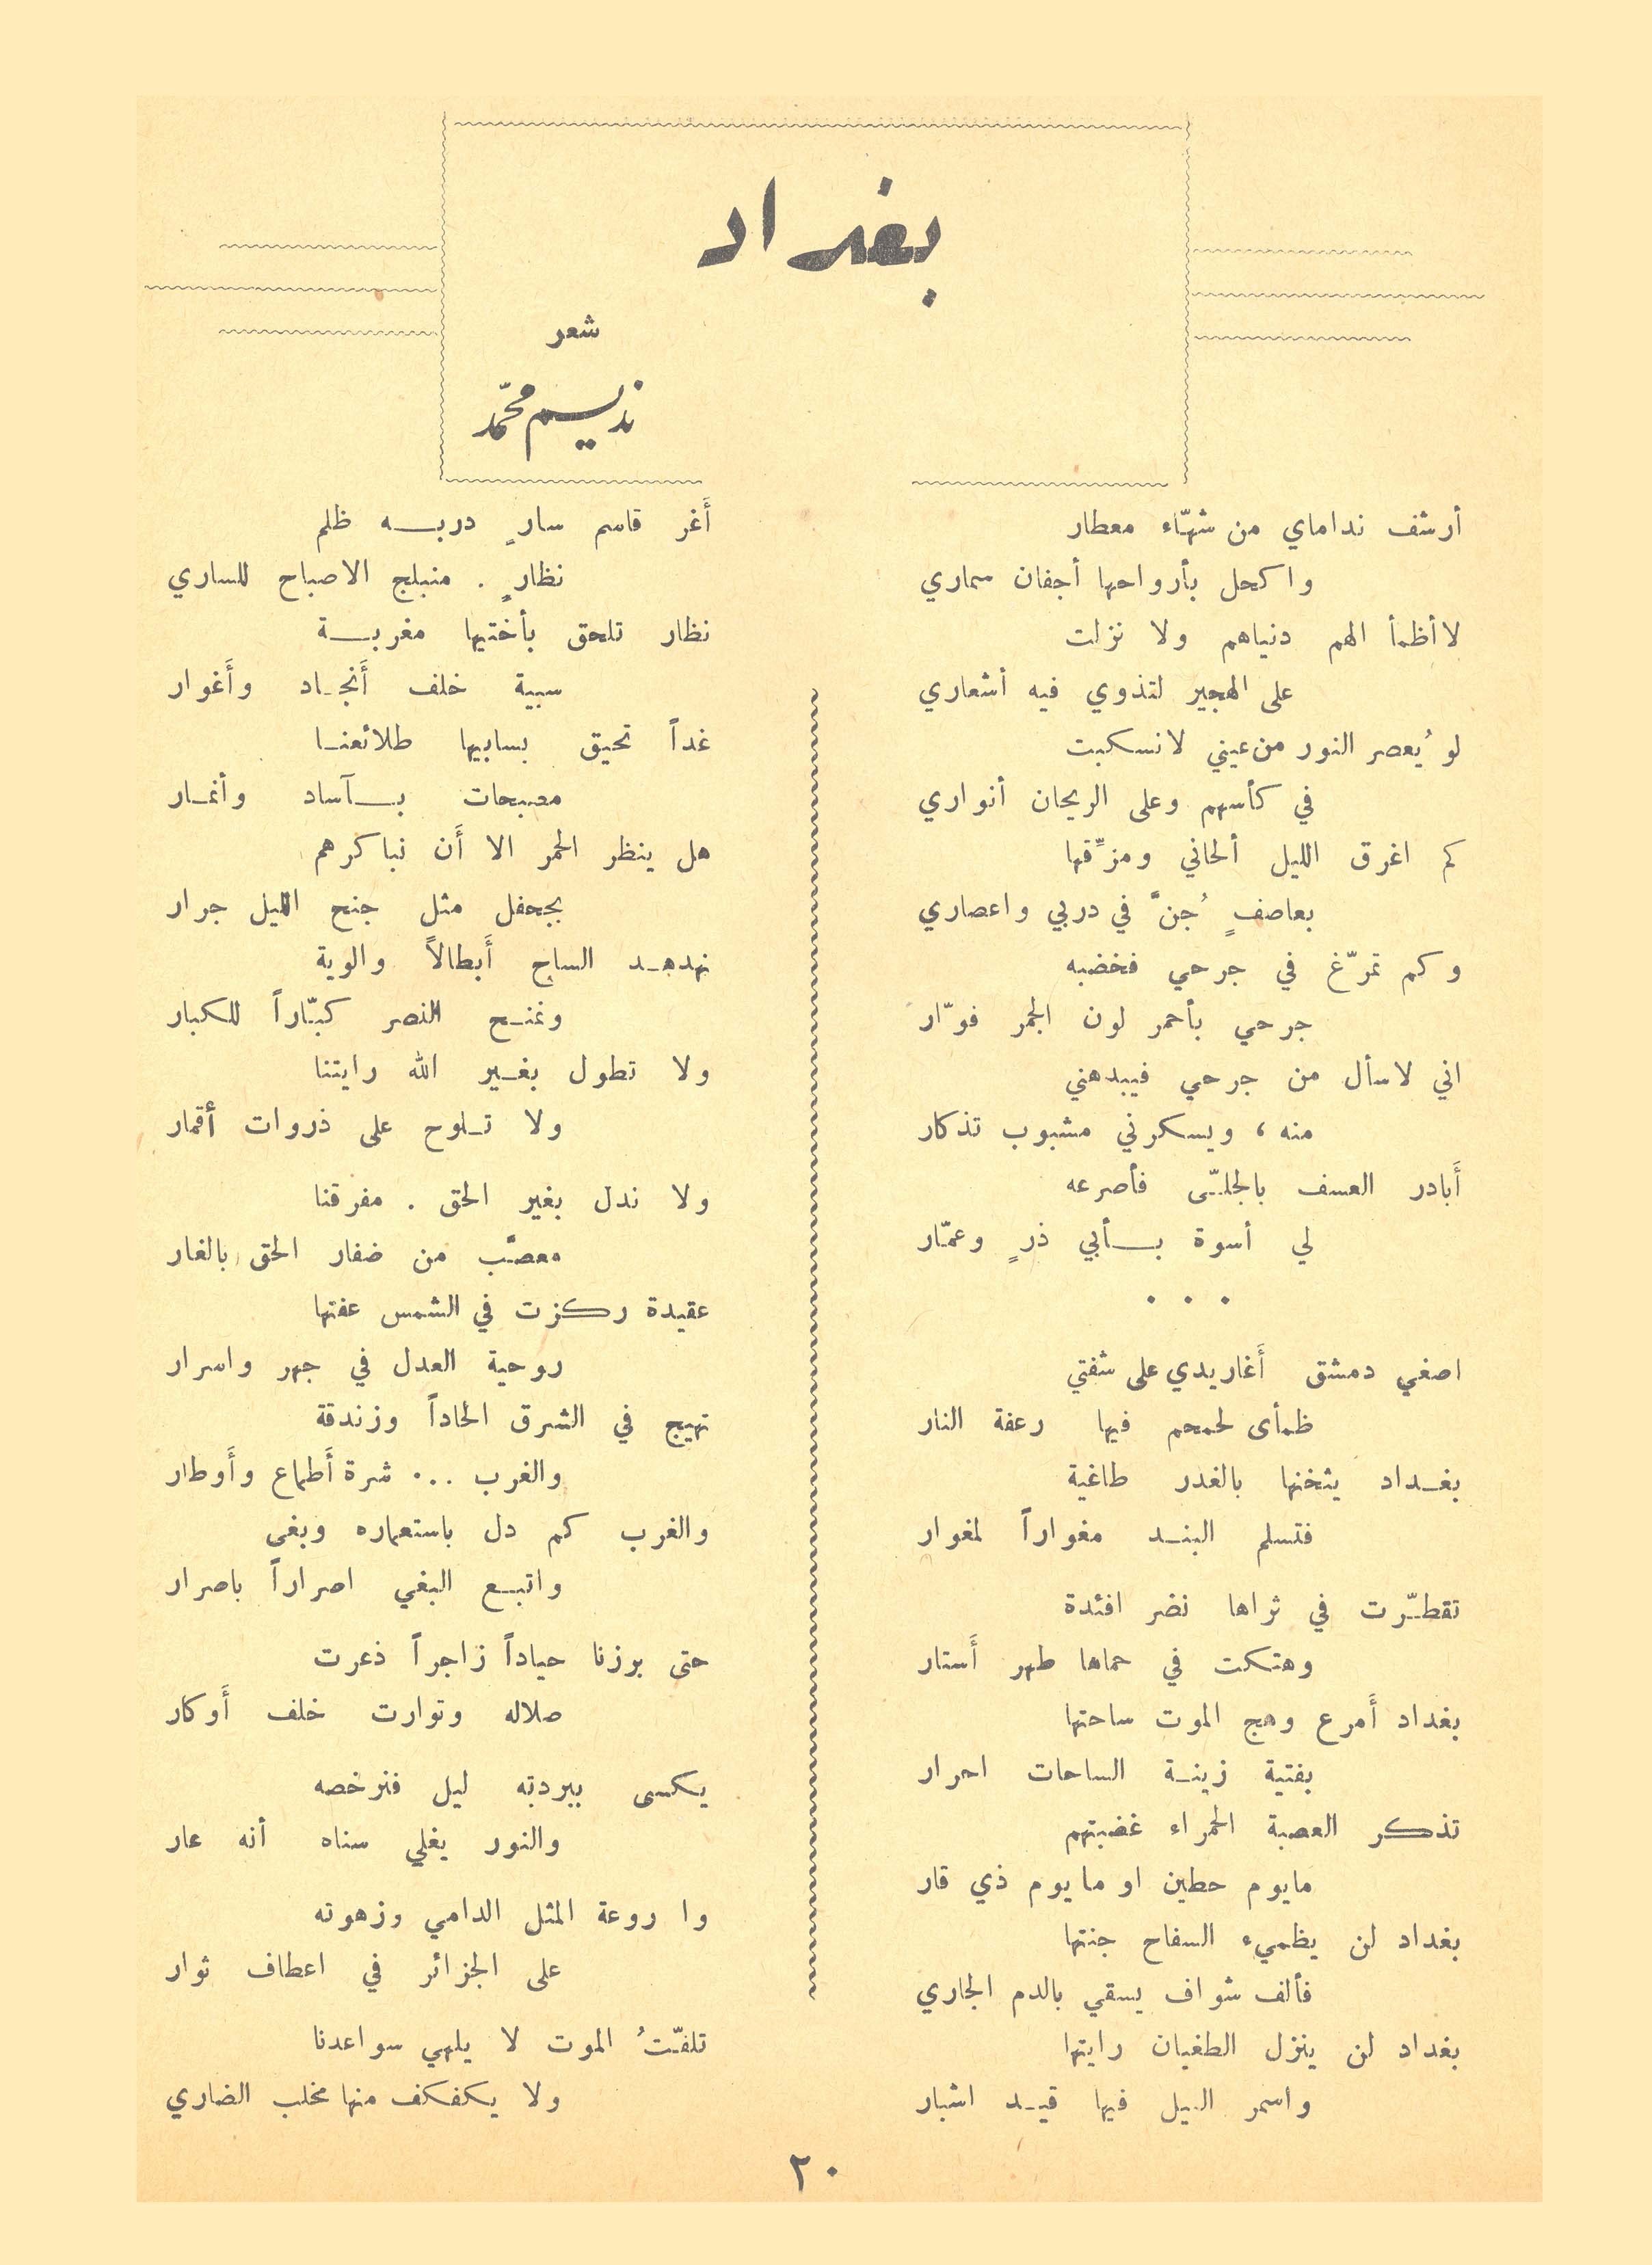 بغداد
شعر
نديم محمّد
أرشف نداماي من شهّاء معطار
واكحل بأرواحها أجفان سماري
لا أظمأ الهم دنياهم ولا نزلت
على الهجير لتذوي فيه أشعاري
لو ُيعصر النور من عيني لانسكبت
في كأسهم وعلى الريحان أنواري
كم اغرق الليل ألحاني ومزّقها
بعاصفٍ ُجنَّ في دربي واعصاري
وكم تمرّغ في جرحي فخضبه
جرحي بأحمر لون الجمر فوّار
اني لاسأل من جرحي فيبدهني
منه ، ويسكرني مشبوب تذكار
أَبادر العسف بالجلّى فأصرعه
لي أسوة بأبي ذرٍ وعمّار
. . .
اصغي دمشق أَغاريدي على شفتي
ظمأى لحمحم فيها رعفة النار
بغداد يثخنها بالغدر طاغية
فتسلم البند مغواراً لمغوار
تقطّرت في ثراها نضر افئدة
وهتكت في حماها طهر أَستار
بغداد أَمرع وهج الموت ساحتها
بفتية زينة الساحات احرار
تذكر العصبة الحمراء غضبتهم
مايوم حطين او مايوم ذي قار
بغداد لن يظميء السفاح جنتها
فألف شواف يسقي بالدم الجاري
بغداد لن ينزل الطغيان رايتها
واسمر النيل فيها قيد اشبار
أَغر قاسم سارٍ دربه ظلم
نظارٍ . منبلج الاصباح للساري
نظار تلحق بأختيها مغربة
سبية خلف أَنجاد وأَغوار
غداً تحيق بسابيها طلائعنا
مصبحات بآساد وأنمار
هل ينظر الحمر الا أَن نباكرهم
بجحفل مثل جنح الليل جرار
نهدهد الساح أَبطالاً والوية
ونمنح النصر كبّاراً للكبار
ولا تطول بغير الله رايتنا
ولا تلوح على ذروات أقمار
ولا ندل بغير الحق . مفرقنا
معصَّب من ضفار الحق بالغار
عقيدة ركزت في الشمس عفتها
روحية العدل في جهر واسرار
نهيج في الشرق الحاداً وزندقة
والغرب ... شرة أَطماع وأَوطار
والغرب كم دل باستعماره وبغى
واتبع البغي اصراراً باصرار
حتى برزنا حياداً زاجراً ذعرت
صلاله وتوارت خلف أَوكار
يكسى ببردته ليل فنرخصه
والنور يغلي سناه أنه عار
وا روعة المثل الدامي وزهوته
على الجزائر في اعطاف ثوار
تلفّتُ الموت لا يلهي سواعدنا
ولا يكفكف منها مخلب الضاري
٢٠